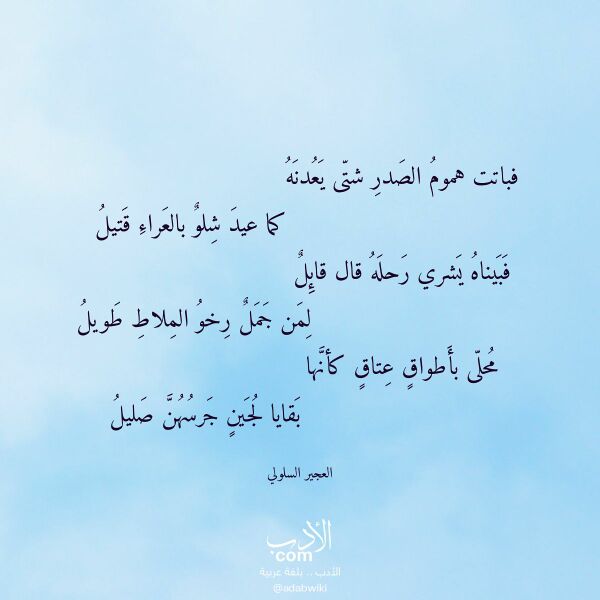 فباتت همومُ الصَدرِ شتّى يَعُدنَهُ
كما عيدَ شِلوٌ بالعَراءِ قَتيلُ
فَبَيناهُ يَشري رَحلَهُ قال قائِلٌ
لِمَن جَمَلٌ رِخوُ المِلاطِ طَويلُ
مُحَلّى بأَطواقٍ عِتاقٍ كأنَّها
بَقايا لُجَينٍ جَرسُهُنَّ صَليلُ
العجير السلولي
الأدب
com
الأدب .. بلغة عربية
@adabwiki